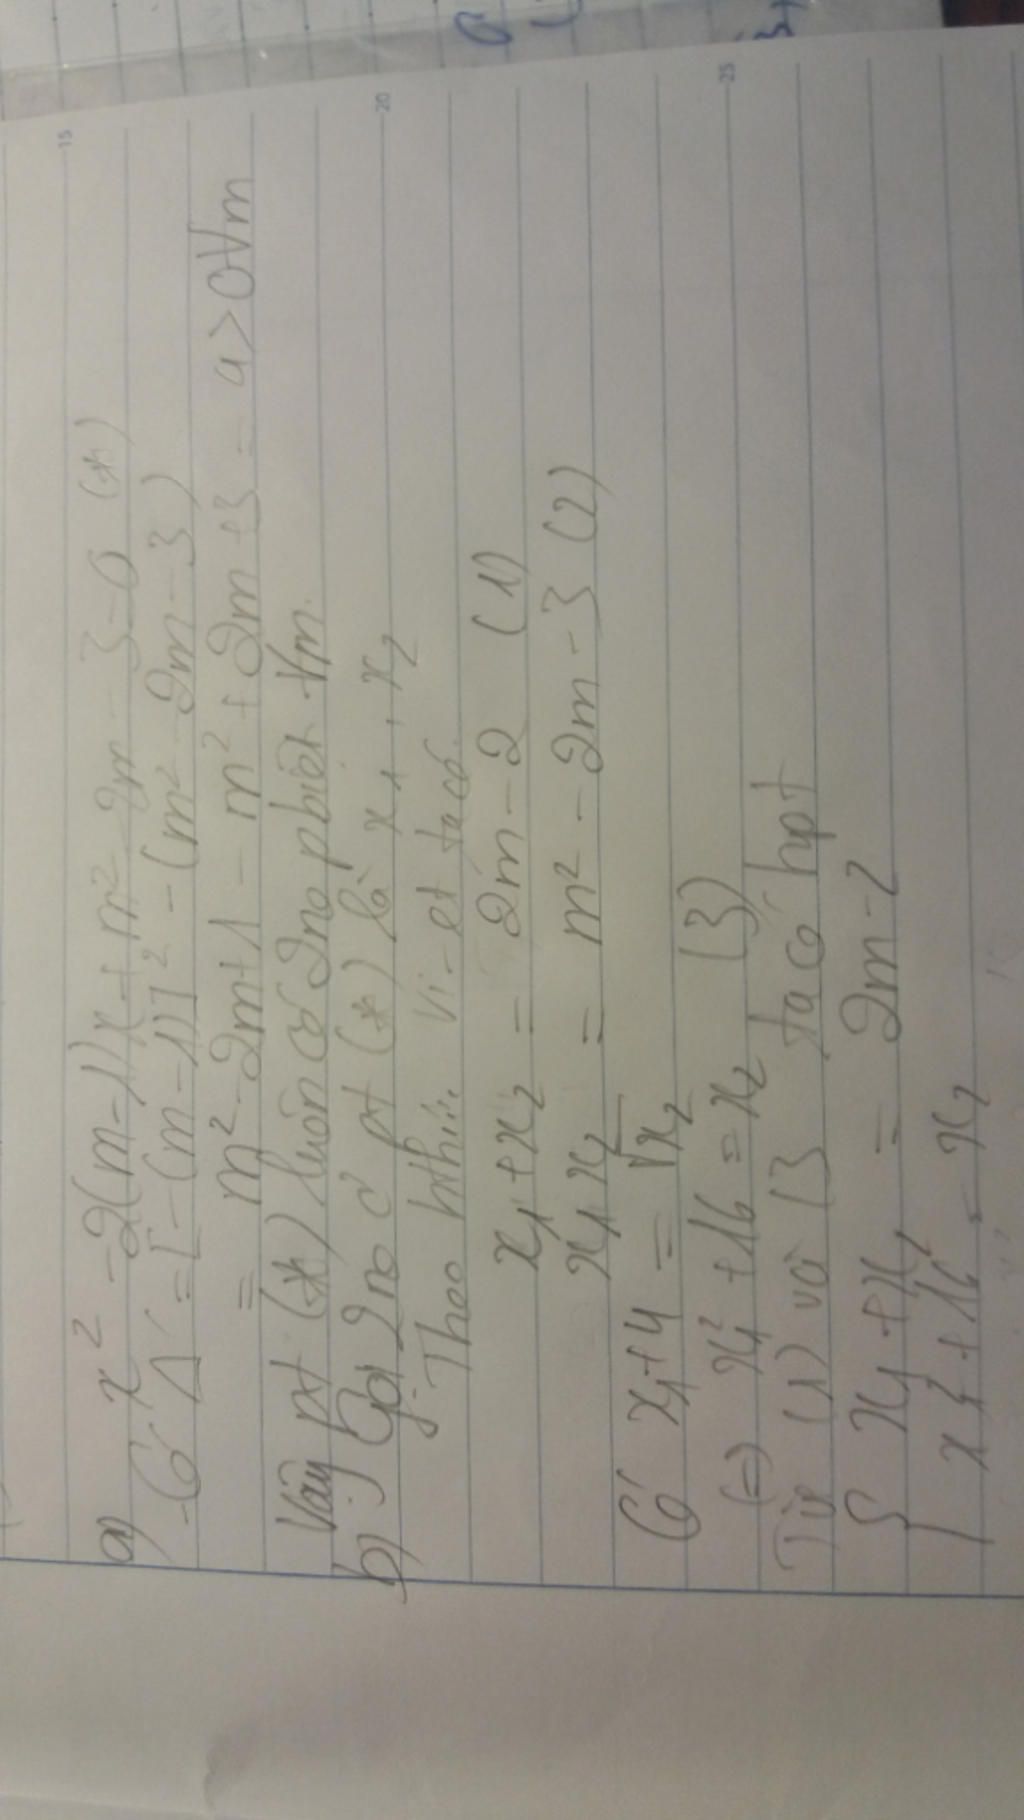 a) x² - 2(m-1)x + m² - 2m - 3 = 0 (*)
Có Δ' = [-(m-1)]² - (m² - 2m - 3)
= m² - 2m + 1 - m² + 2m + 3 = 4 > 0 ∀m
Vậy pt (*) luôn có 2no pbiệt ∀m.
b) Gọi 2no c pt (*) là x₁, x₂
Theo hthức Vi-et ta có
x₁ + x₂ = 2m - 2 (1)
x₁x₂ = m² - 2m - 3 (2)
Có x₁ + 4 = √x₂
(=) x₁² + 16 = x₂ (3)
Từ (1) và (3 ta có hpt
{ x₁ + x₂ = 2m - 2
x₁² + 16 = x₂
15
20
25